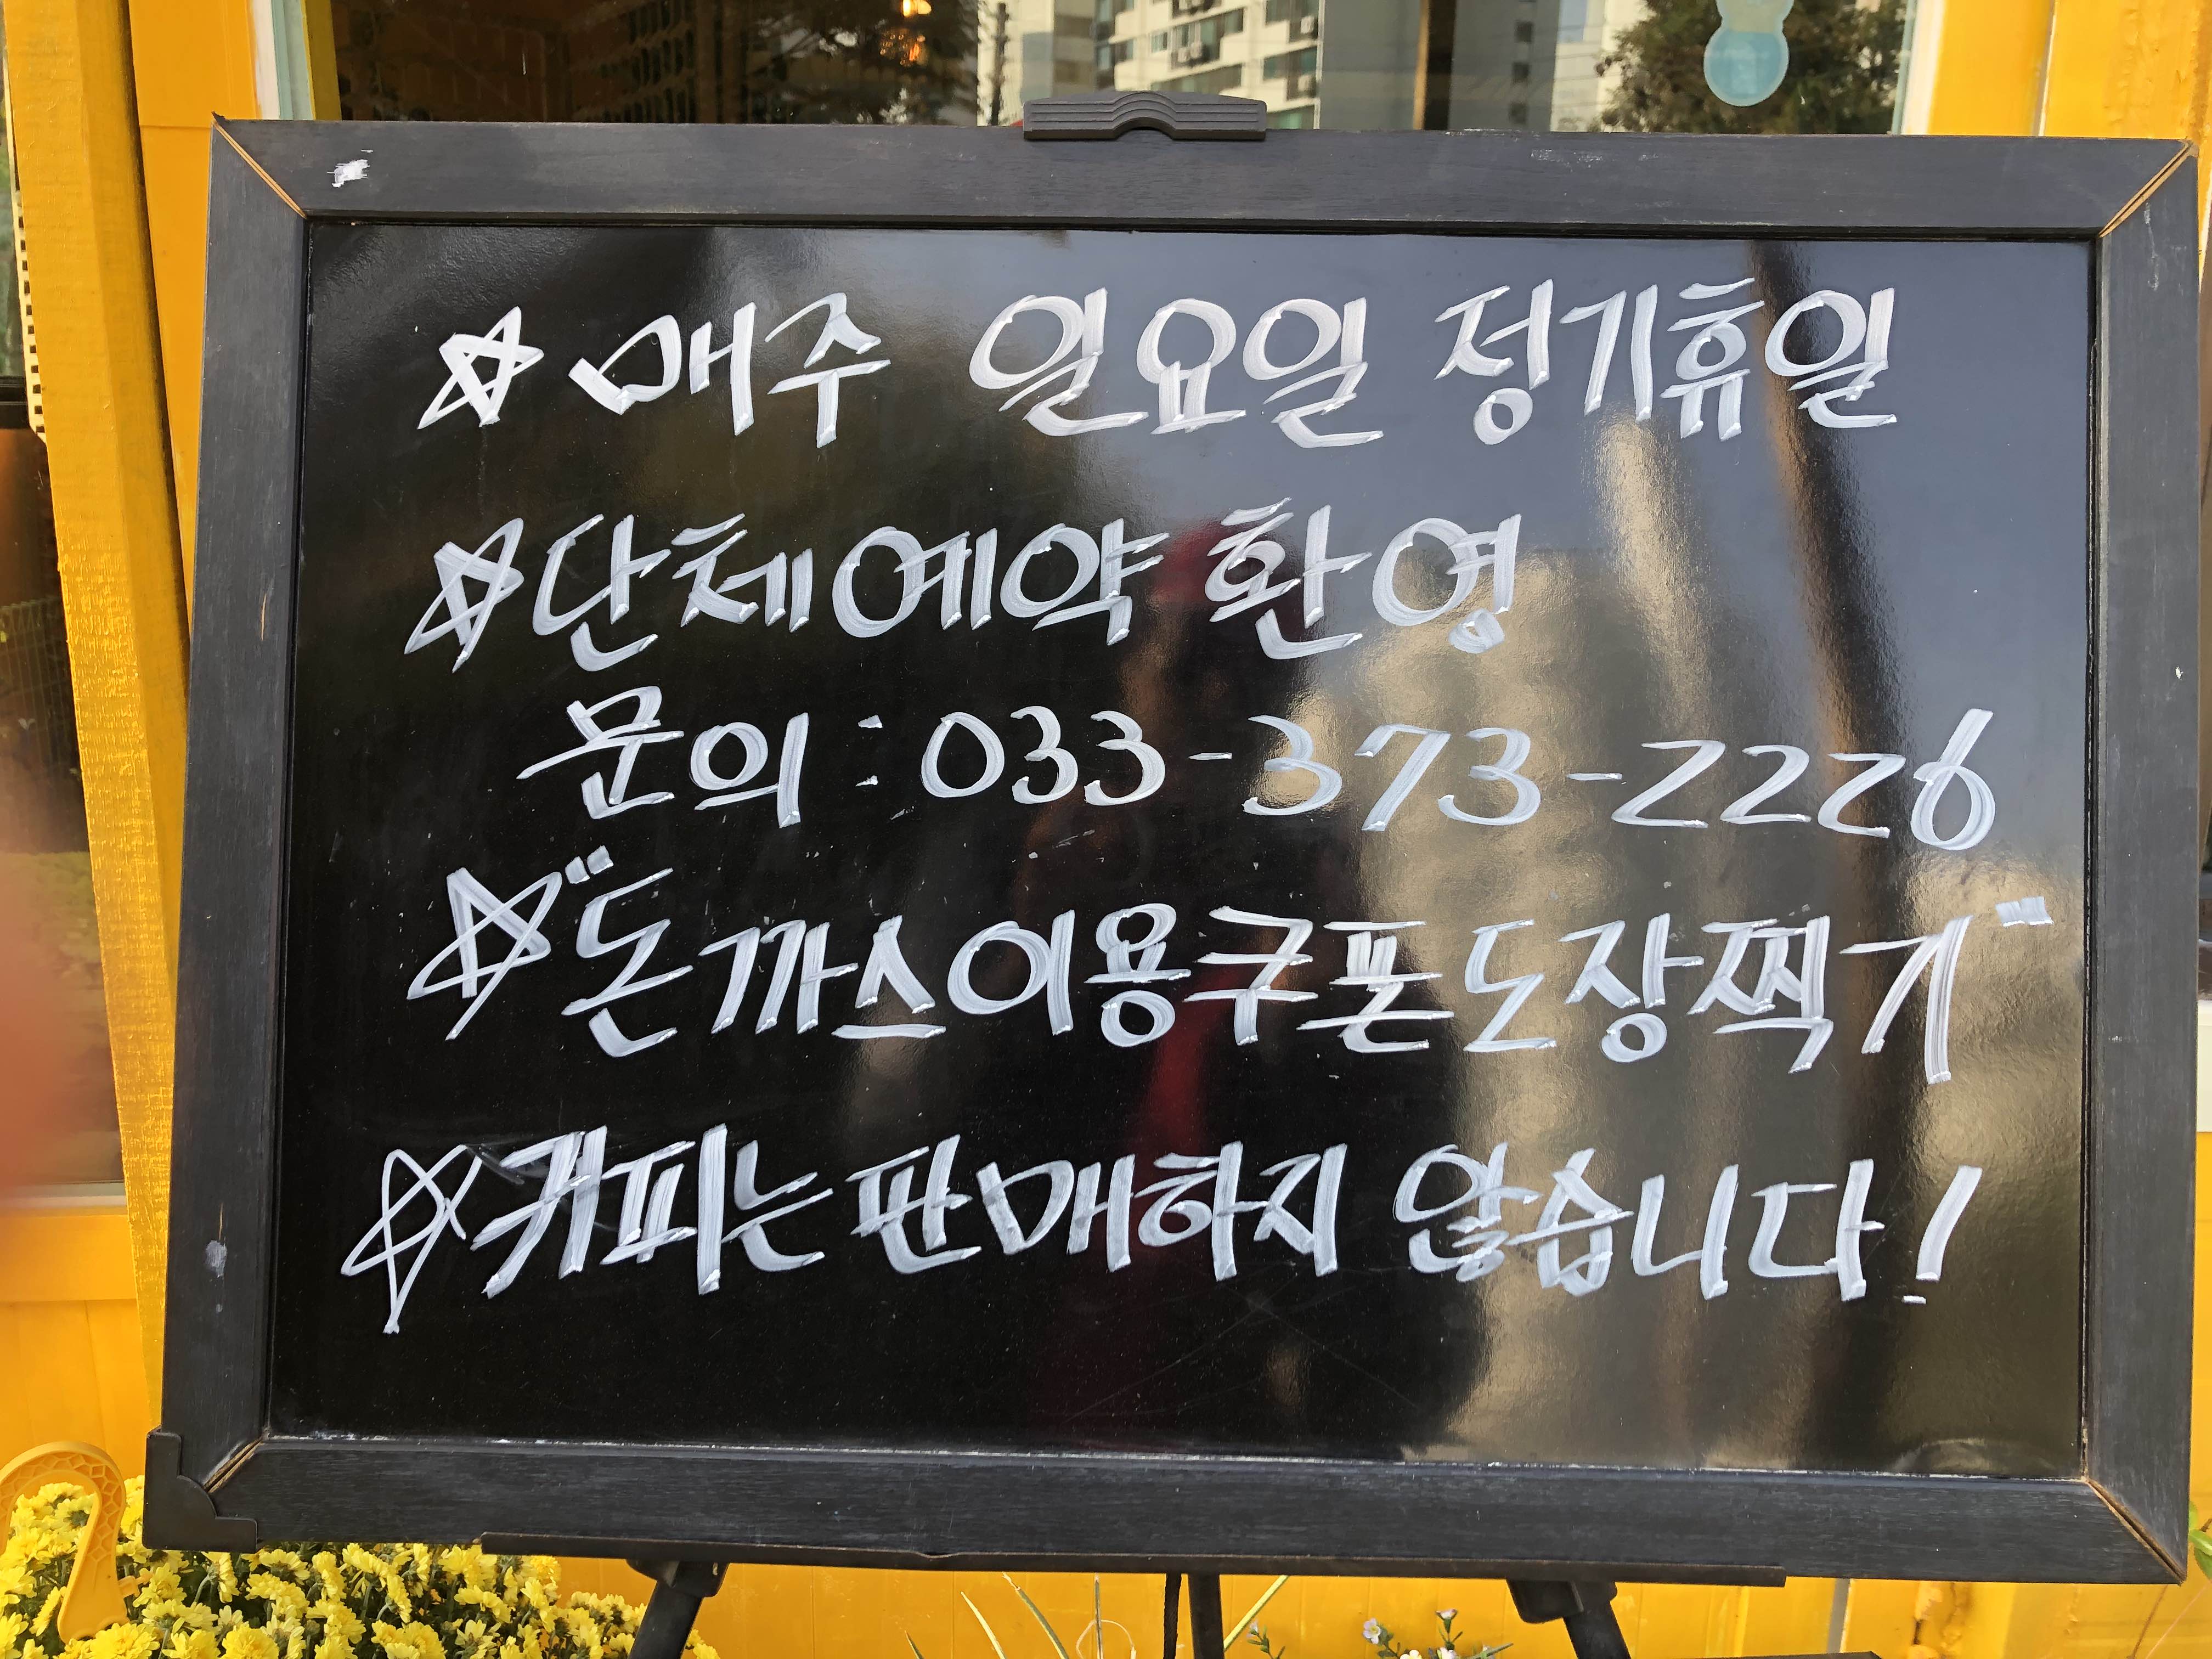 ☆ 매주 일요일 정기휴일
☆ 단체예약 환영
문의 : 033-373-2226
☆ "돈까스이용쿠폰도장찍기"
☆ 커피는 판매하지 않습니다!